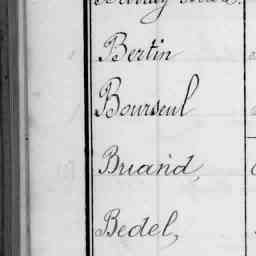 Bertin
Bourseul
Briand,
Bedel,